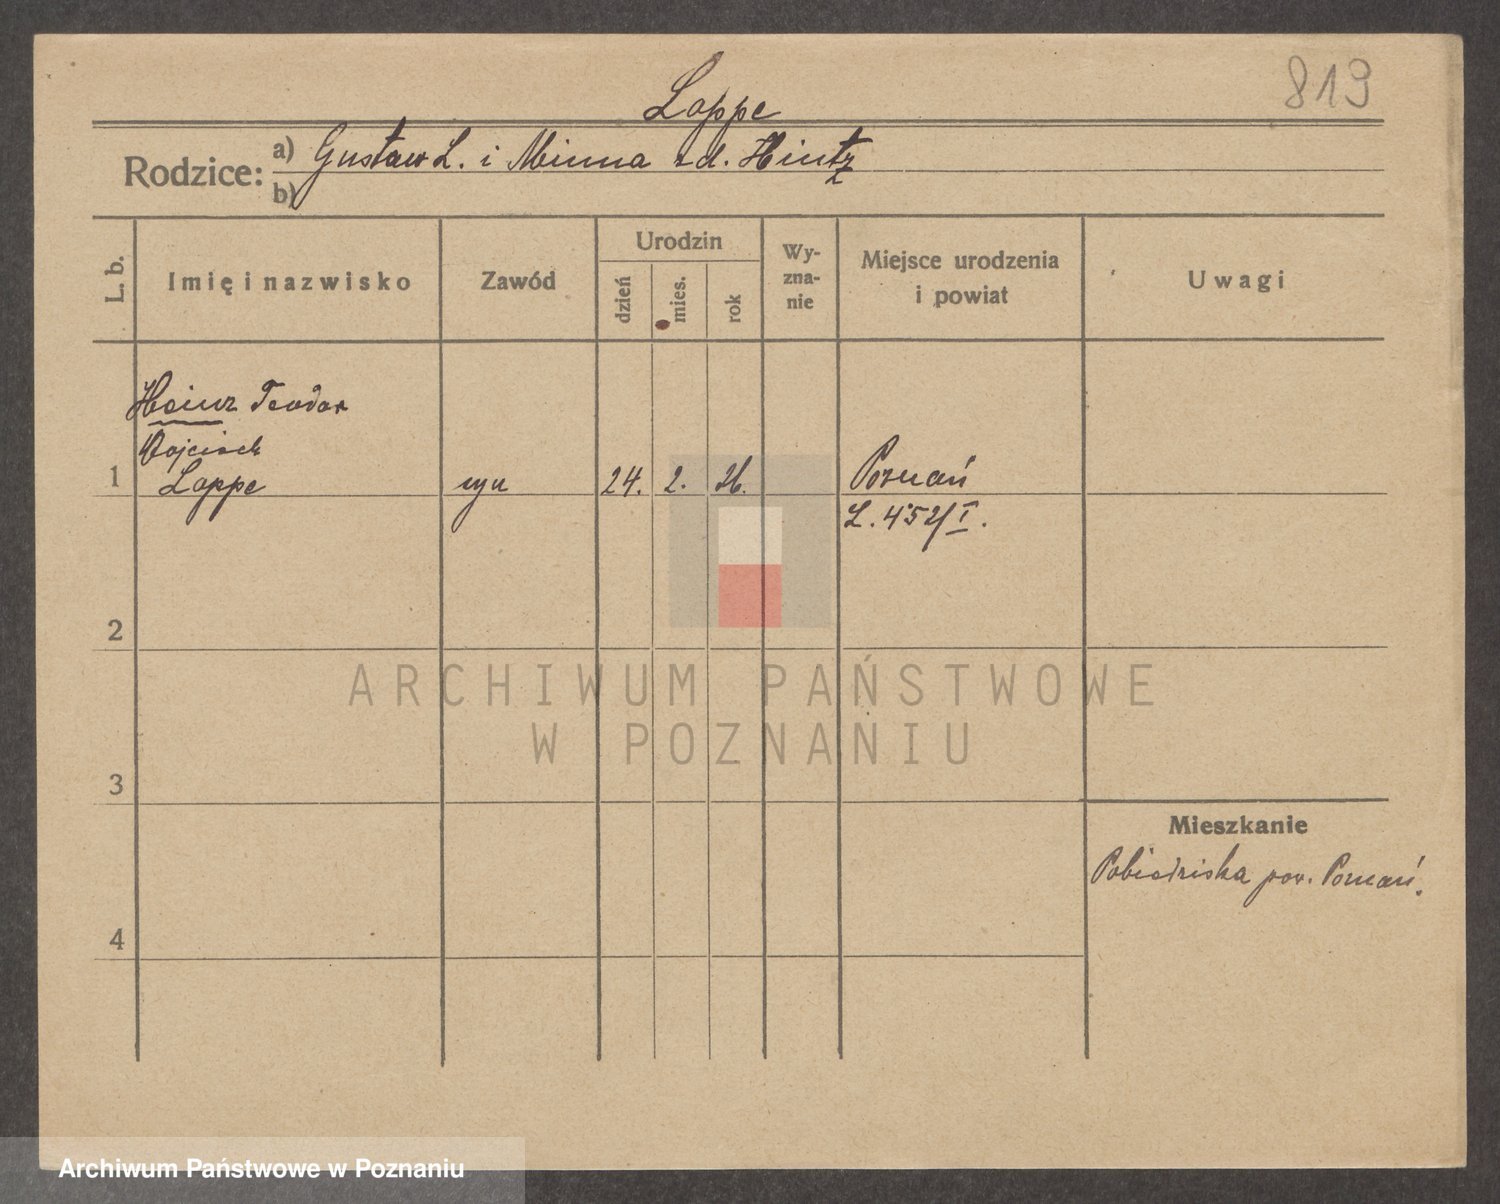 819
Loppe
Rodzice: a) Gustaw L. i Minna zd. Hintz
b)
L. b.
Imię i nazwisko
Zawód
Urodzin
dzień
mies.
rok
Wy-
zna-
nie
Miejsce urodzenia
i powiat
Uwagi
Heinz Teodor
Wojciech
1 Loppe syn 24. 2. Poznań
L. 452/I.
2
ARCHIWUM PAŃSTWOWE
W POZNANIU
3
Mieszkanie
Pobiedziska pow. Poznań.
4
Archiwum Państwowe w Poznaniu